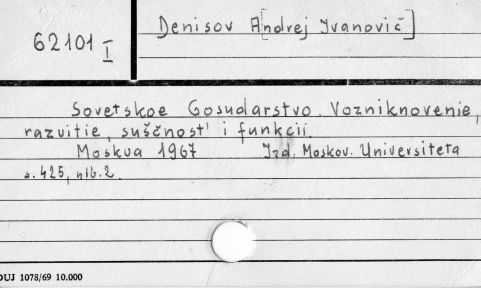 62101 I
Denisov A[ndrej Ivanovič]
Sovetskoe Gosudarstvo. Vozniknovenie,
razvitie, suščnost' i funkcii.
Moskva 1967 Izd. Moskov. Universiteta
s. 425, nlb. 2.
DUJ 1078/69 10.000